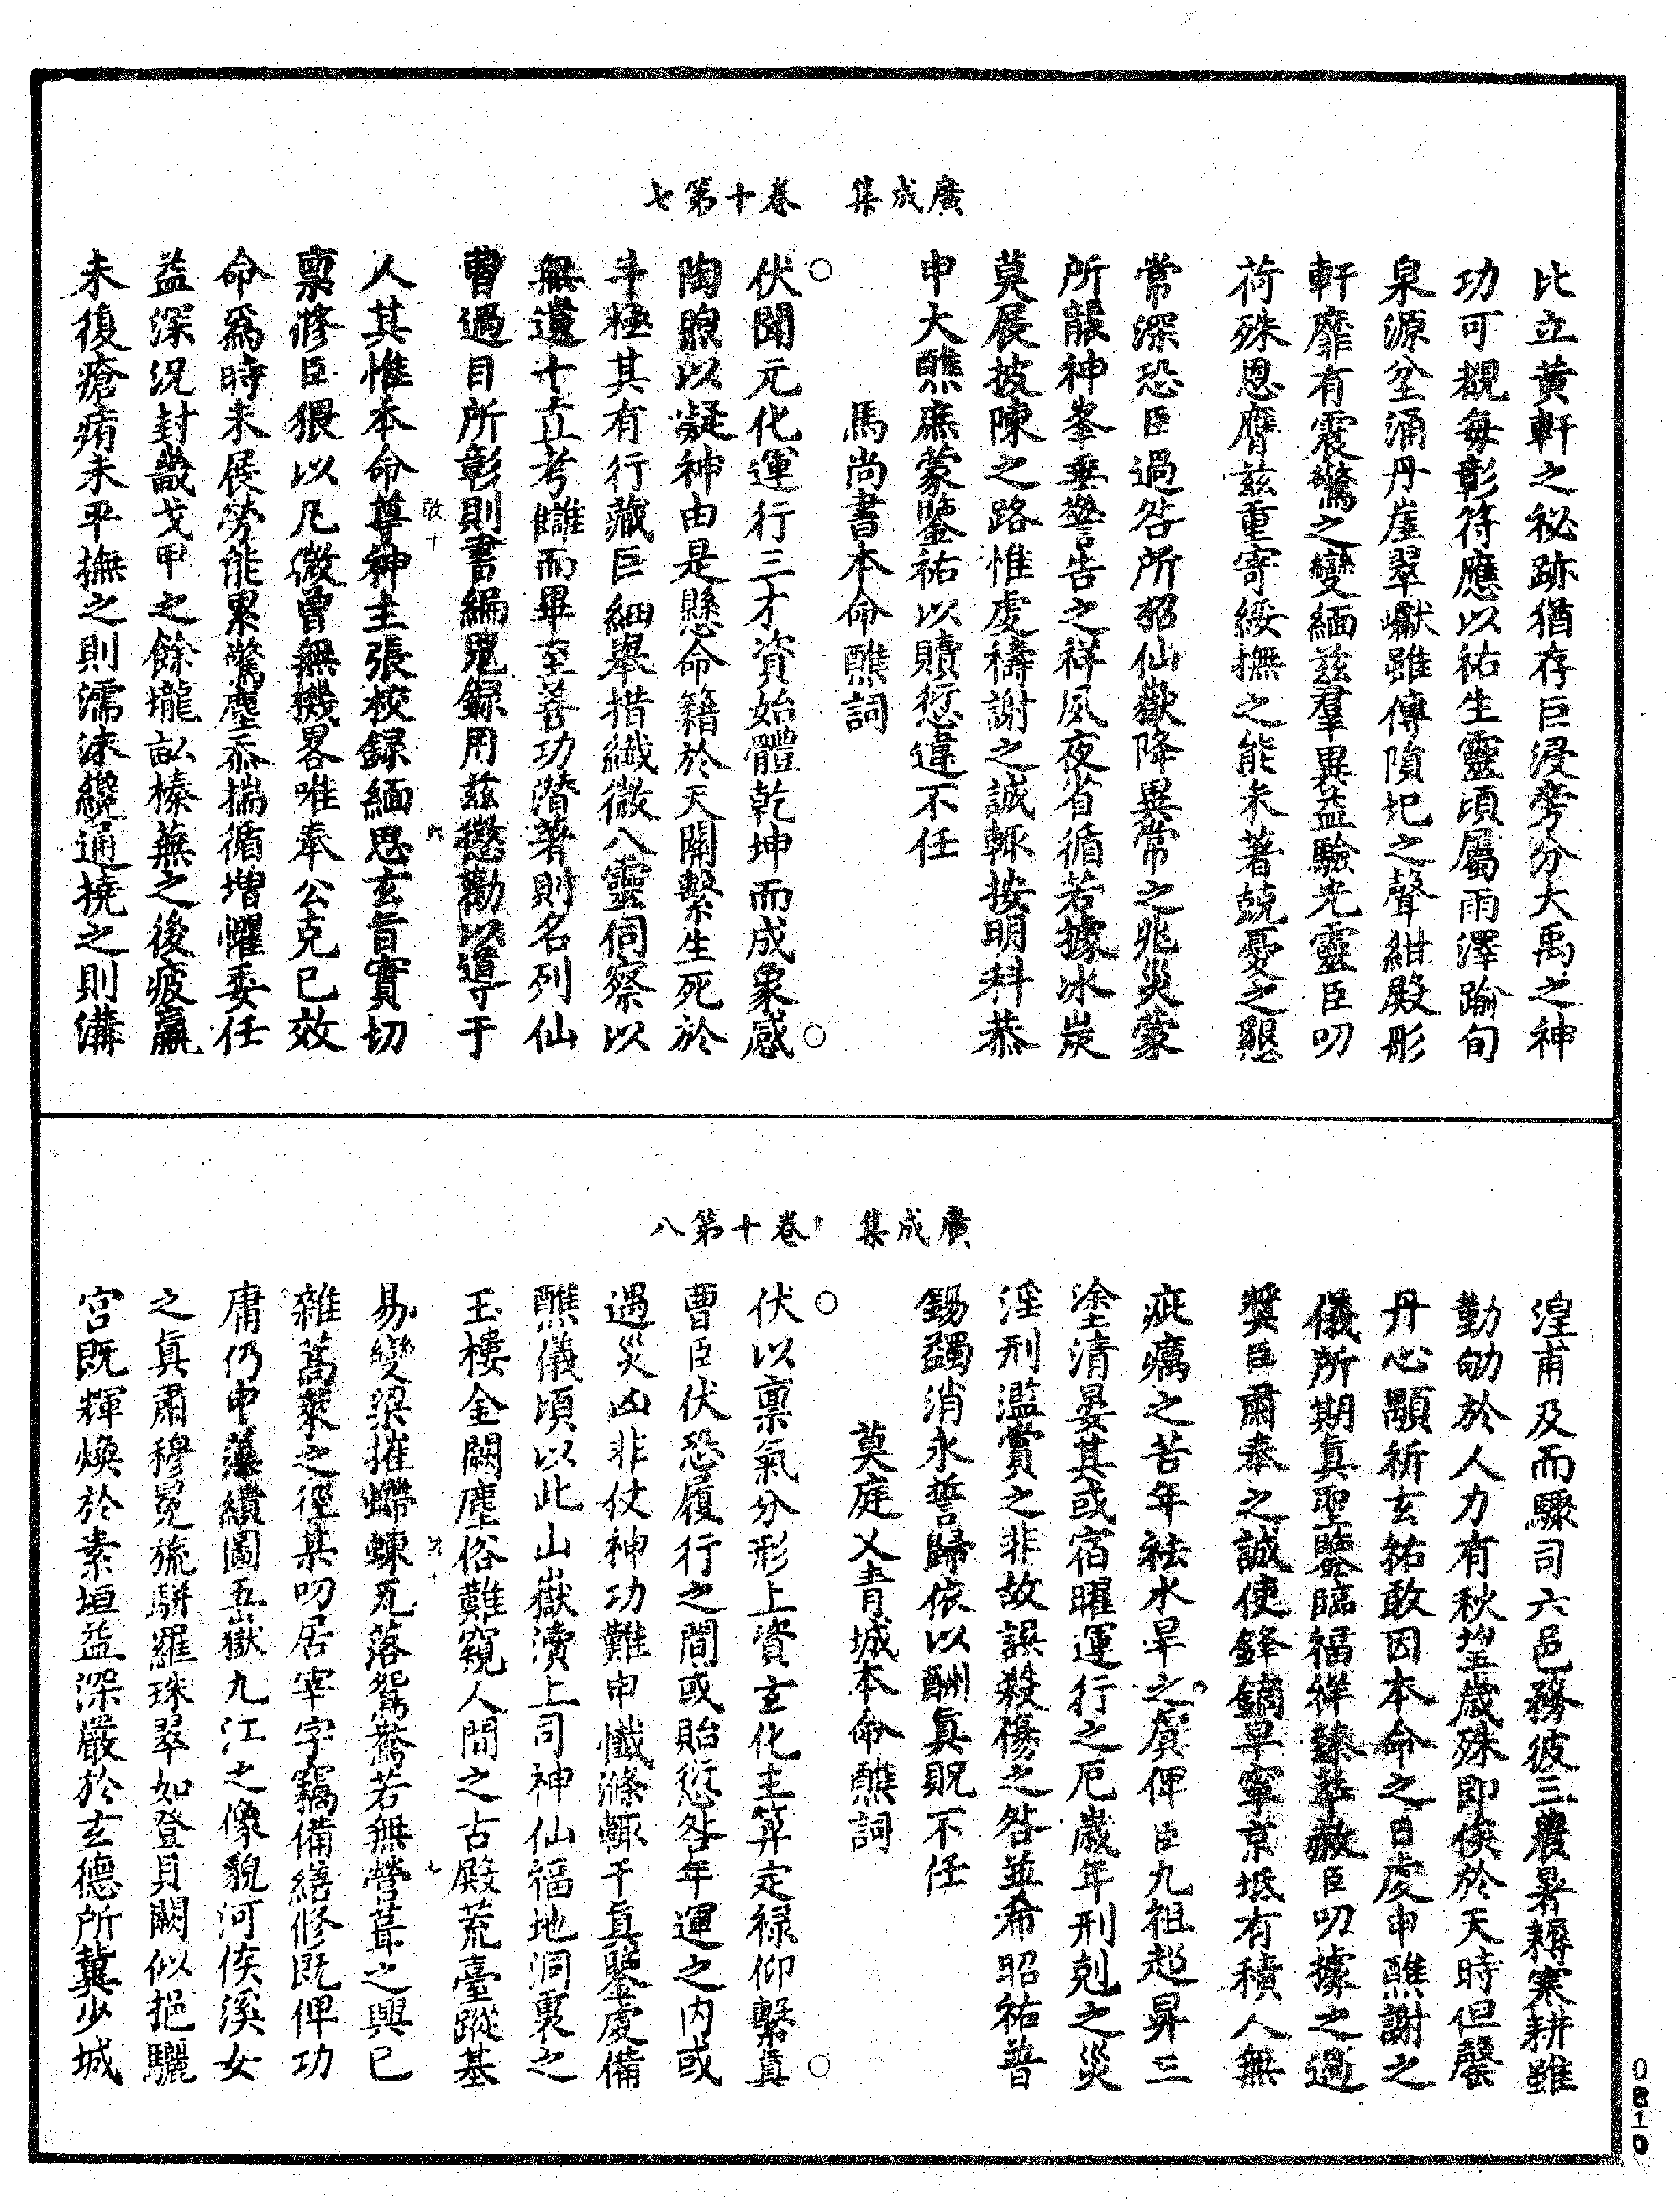 廣成集　卷十第七
比立黄軒之祕跡猶存巨浸旁分大禹之神
功可覩每彰符應以祐生靈頃屬雨澤踰旬
泉源坌涌丹崖翠巘雖傳隤圮之聲紺殿彤
軒靡有震驚之變緬兹羣異益驗光靈臣叨
荷殊恩膺兹重寄綏撫之能未著兢憂之懇
常深恐臣過咎所招仙嶽降異常之兆災蒙
所龍神峯垂警告之祥夙夜省循若據冰炭
莫展披陳之路惟虔禱謝之誠輒按明科恭
申大醮庶蒙鑒祐以贖愆違不任
馬尚書本命醮詞
○伏聞元化運行三才資始體乾坤而成象感○
陶煦以凝神由是懸命籍於天關繫生死於
斗極其有行藏巨細舉措纖微八靈伺察以
無遺十直考讎而畢至善功潜著則名列仙
曹過目所彰則書編鬼録用兹懲勸以導于
人其惟本命尊神主張校録緬思玄旨實切
禀修臣猥以凡微曾無機畧唯奉公克已效
命爲時未展勞能累驚塵忝揣循增懼委任
益深況封畿戈甲之餘壠畝榛蕪之後疲羸
未復瘡痏未平撫之則濡沫纔通撓之則溝
廣成集　卷十第八
湟甫及而驟司六邑務彼三農暑耨寒耕雖
勤劬於人力有秋望歲殊即俟於天時但罄
丹心顒祈玄祐敢因本命之日虔申醮謝之
儀所期真聖鑒臨福祥臻萃赦臣叨據之過
奬臣肅奉之誠使鋒鏑早寧京坻有積人無
疵癘之苦年袪水旱之虞俾臣九祖超昇三
塗清晏其或宿曜運行之厄歲年刑剋之災
淫刑濫賞之非故誤殺傷之咎並希昭祐普
錫蠲消永誓歸依以酬真貺不任
莫庭乂青城本命醮詞
○伏以禀氣分形上資玄化主筭定禄仰繫真○
曹臣伏恐履行之間或貽愆咎年運之内或
遇災凶非仗神功難申懺滌輒干真鑒虔備
醮儀頃以此山嶽瀆上司神仙福地洞裏之
玉樓金闕塵俗難窺人間之古殿荒臺蹤基
易變梁摧螮蝀瓦落鴛鴦若無營葺之興已
雜蒿萊之徑某叨居宰字竊備繕修既俾功
庸仍申藻繢圖五嶽九江之像貌河侯溪女
之真肅穆冕旒駢羅珠翠如登貝闕似挹驪
宫既輝煥於素垣益深嚴於玄德所冀少城
0810